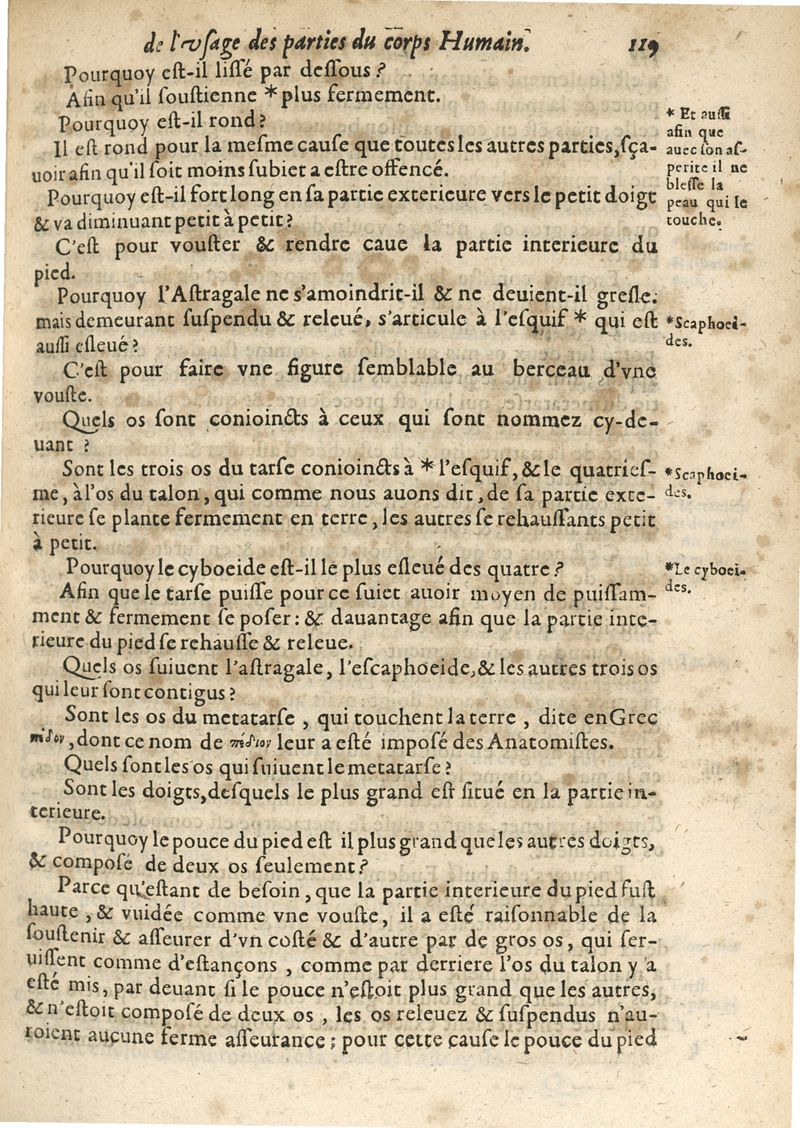 de l'vsage des parties du corps Humain. 119
Pourquoy est-il lissé par dessous ?
Afin qu'il soustienne * plus fermement.
Pourquoy est-il rond ?
Il est rond pour la mesme cause que toutes les autres parties, sça-
uoir afin qu'il soit moins subiet a estre offencé.
Pourquoy est-il fort long en sa partie exterieure vers le petit doigt
& va diminuant petit à petit ?
C'est pour vouster & rendre caue la partie interieure du
pied.
Pourquoy l'Astragale ne s'amoindrit-il & ne deuient-il gresle:
mais demeurant suspendu & releué, s'articule à l'esquif * qui est
aussi esleué ?
C'est pour faire vne figure semblable au berceau d'vne
vouste.
Quels os sont conioincts à ceux qui sont nommez cy-de-
uant ?
Sont les trois os du tarse conioincts à * l'esquif, & le quatries-
me, à l'os du talon, qui comme nous auons dit, de sa partie exte-
rieure se plante fermement en terre, les autres se rehaussants petit
à petit.
Pourquoy le cyboeide est-il le plus esleué des quatre ?
Afin que le tarse puisse pour ce suiet auoir moyen de puissam-
ment & fermement se poser : & dauantage afin que la partie inte-
rieure du pied se rehausse & releue.
Quels os suiuent l'astragale, l'escaphoeide, & les autres trois os
qui leur sont contigus ?
Sont les os du metatarse, qui touchent la terre, dite en Grec
, dont ce nom de leur a esté imposé des Anatomistes.
Quels sont les os qui suiuent le metatarse ?
Sont les doigts, desquels le plus grand est situé en la partie in-
terieure.
Pourquoy le pouce du pied est il plus grand que les autres doigts,
& composé de deux os seulement ?
Parce qu'estant de besoin, que la partie interieure du pied fust
haute, & vuidée comme vne vouste, il a esté raisonnable de la
soustenir & asseurer d'vn costé & d'autre par de gros os, qui ser-
uissent comme d'estançons, comme par derriere l'os du talon y a
esté mis, par deuant si le pouce n'estoit plus grand que les autres,
& n'estoit composé de deux os, les os releuez & suspendus n'au-
roient aucune ferme asseurance ; pour cette cause le pouce du pied
* Et aussi
afin que
auec son as-
perite il ne
blesse la
peau qui le
touche.
*Scaphoei-
des.
*Scaphoei-
des.
*Le cyboei-
des.